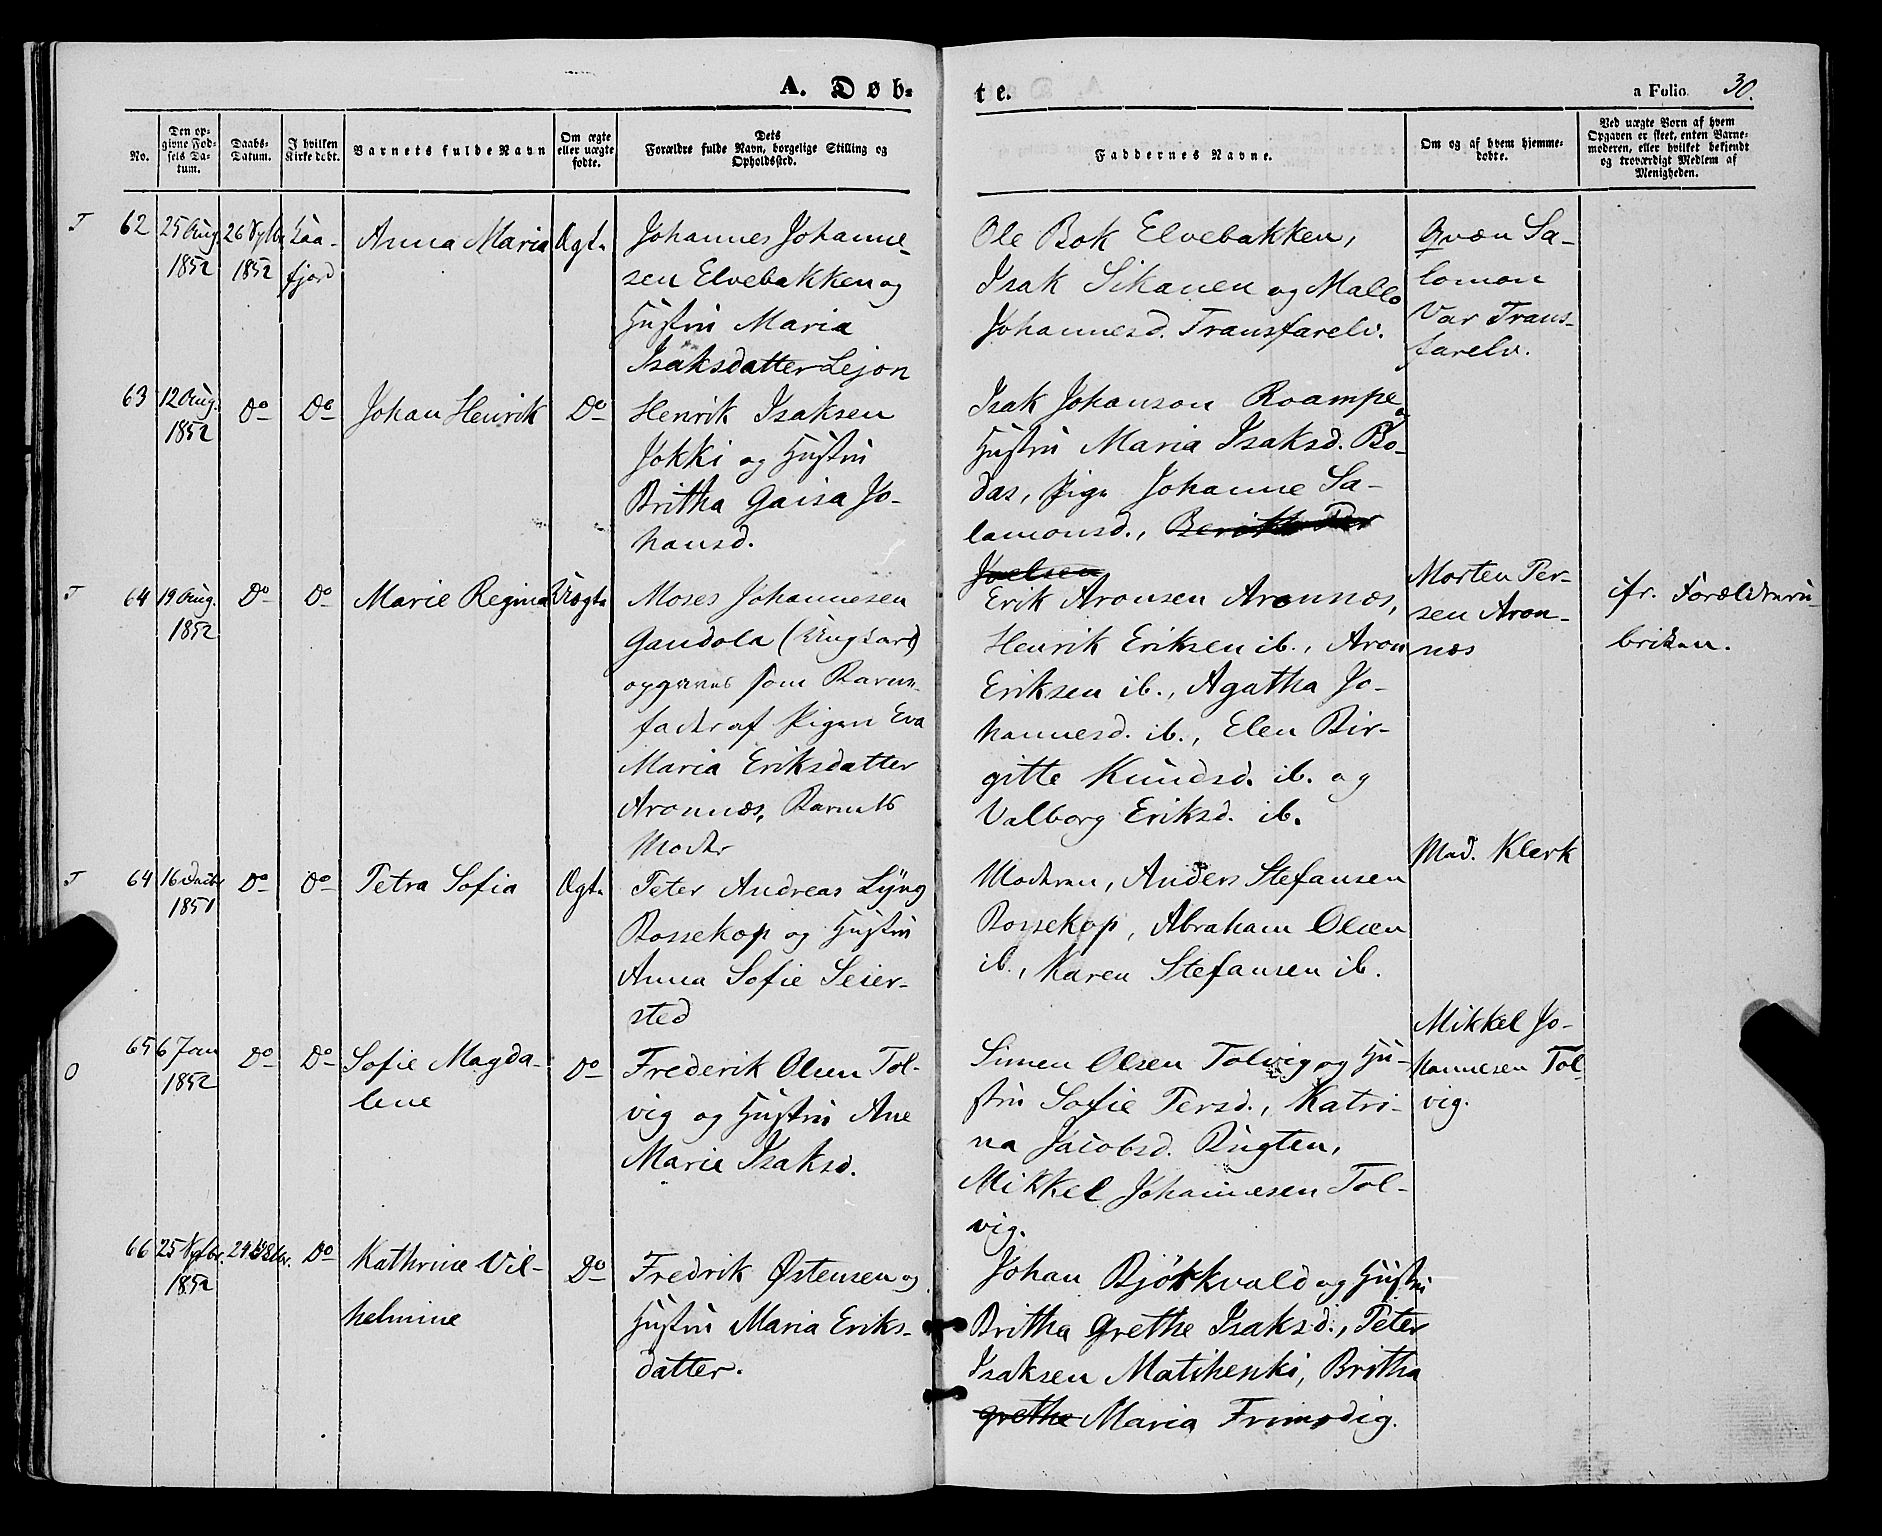 A. Døb-
te.
a Folio 30.
No.
Den op-
givne Fød-
sels Da-
tum.
Daabs-
Datum.
I hvilken
Kirke døbt.
Barnets fulde Navn
Om ægte
eller uægte
fødte.
Dets
Forældre fulde Navn, borgelige Stilling og
Opholdssted.
Faddernes Navne.
Om og af hvem hjemme-
døbte.
Ved uægte Børn af hvem
Opgaven er skeet, enten Barne-
moderen, eller hvilket bekjendt
og troværdigt Medlem af
Menigheden.
T
62
25 Aug.
1852
26 Sptbr
1852
Kaa-
fjord
Anna Maria
Ægte
Johannes Johanne-
sen Elvebakken og
Hustru Maria
Isaksdatter Lejon
Ole Bok Elvebakken,
Isak Sikanen og Mallo
Johannesd. Transfarelv.
Qvæn Sa-
lomon
Var Trans-
farelv.
63
12 Aug.
1852
Do
Do
Johan Henrik
Do
Henrik Isaksen
Jokki og Hustru
Britha Gaisa Jo-
hansd.
Isak Johanson Roampe og
Hustru Maria Isaksd. Bo-
das, Pige Johanne Sa-
lamonsd.,
Joelsen
T
64
19 Aug.
1852
Do
Do
Marie Regina
Uægte
Moses Johannesen
Gandola (Ungkarl)
opgives som Barne-
fader af Pigen Eva
Maria Eriksdatter
Aronnæs, Barnets
Moder
Erik Aronsen Aronnæs,
Henrik Eriksen ib., Aron
Eriksen ib., Agatha Jo-
hannesd. ib., Elen Bir-
gitte Knudsd. ib. og
Valborg Eriksd. ib.
Morten Per-
sen Aron-
næs
cfr. Forældreru-
briken.
T
64
16 Decbr
1851
Do
Do
Petra Sofia
Ægte
Peter Andreas Lyng
Bossekop og Hustru
Anna Sofie Seier-
sted
Moderen, Anders Stefansen
Bossekop, Abraham Olsen
ib., Karen Stefansen ib.
Mad. Klerk
O
65
6 Jan
1852
Do
Do
Sofie Magda-
lene
Do
Frederik Olsen Tol-
vig og Hustru Ane
Marie Isaksd.
Simen Olsen Tolvig og Hu-
stru Sofie Persd., Katri-
na Jacobsd. Bugten,
Mikkel Johannesen Tol-
vig.
Mikkel Jo-
hannesen Tol-
vig.
66
25 Sptbr.
1852
Do
Kathrine Vil-
helmine
Do
Fredrik Østensen og
Hustru Maria Eriks-
datter.
Johan Bjørkvald og Hustru
Britha Grethe Isaksd., Peter
Isaksen Matihenki, Britha
Grethe Maria Frimodig.